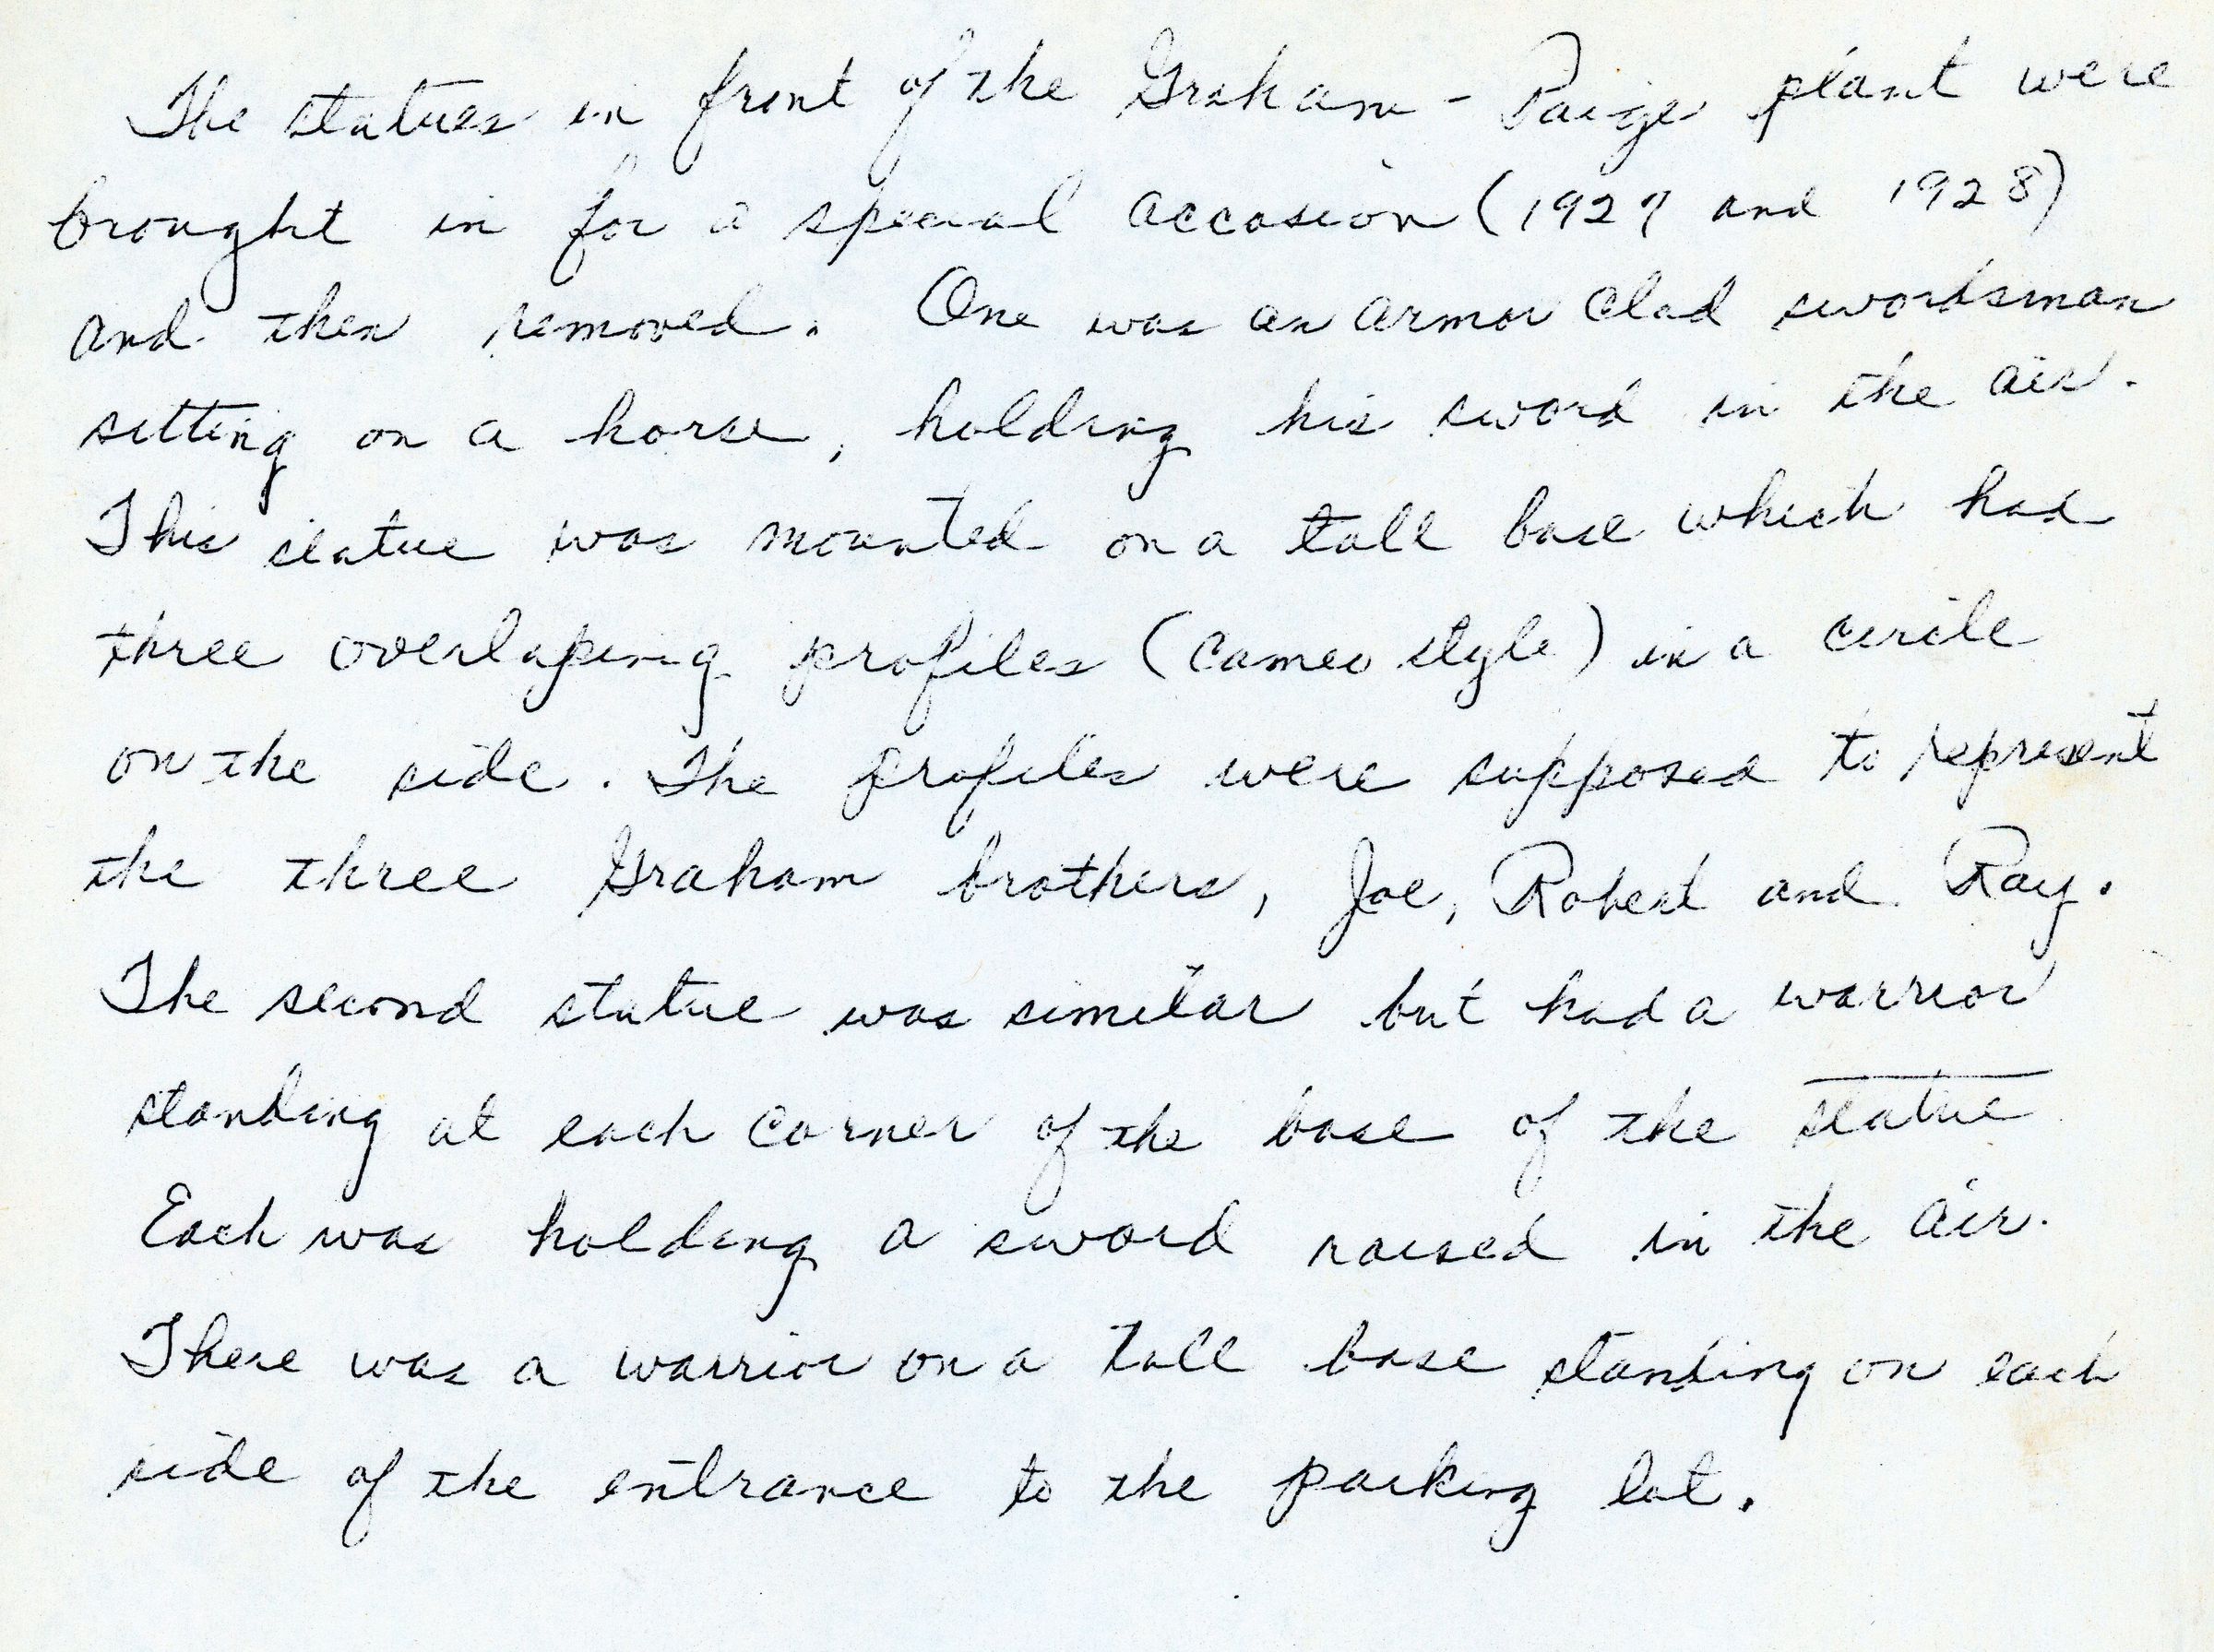 The statues in front of the Graham-Paige plant were
brought in for a special accasion (1927 and 1928)
and then removed. One was an armor clad swordsman
sitting on a horse, holding his sword in the air.
This statue was mounted on a tall base which had
three overlaping profiles (cameo style) in a circle
on the side. The profiles were supposed to represent
the three Graham brothers, Joe, Robert and Ray.
The second statue was similar but had a warrior
standing at each corner of the base of the statue
Each was holding a sword raised in the air.
There was a warrior on a tall base standing on each
side of the entrance to the parking lot.